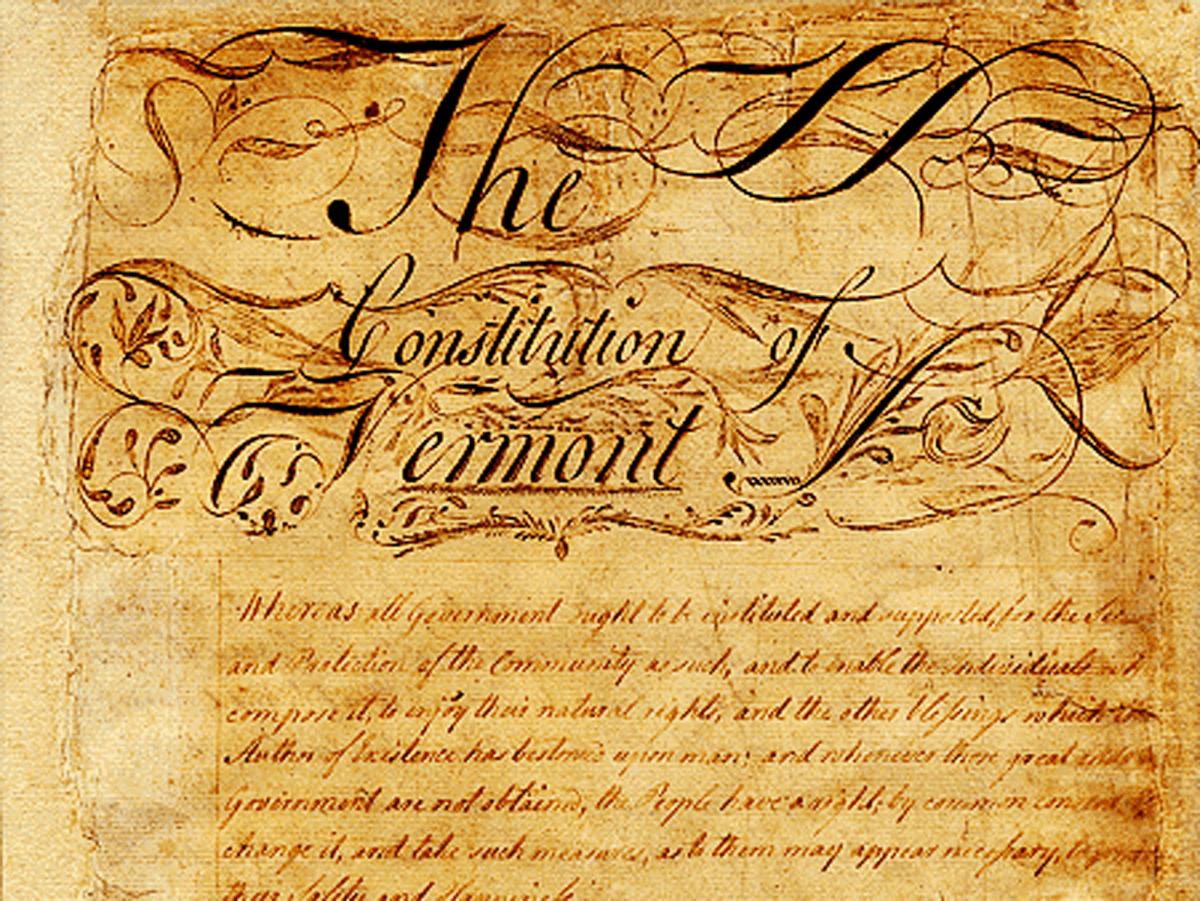 The
Constitution of
Vermont
Whereas all Government ought to be instituted and supported, for the
and Protection of the Community as such, and to enable the individuals
compose it, to enjoy their natural rights, and the other blessings which the
Author of Existence has bestowed upon man; and whenever those great ends of
Government are not obtained, the People have a right, by common consent to
change it, and take such measures, as to them may appear necessary, to
their Safety and Happiness.